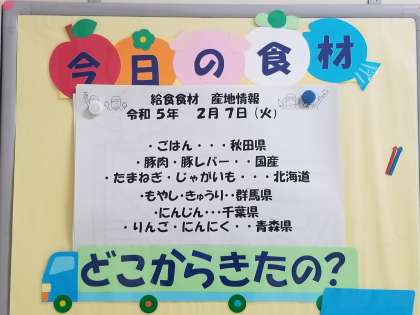 今日の食材
給食食材　産地情報
令和５年　２月７日（火）
・ごはん・・・秋田県
・豚肉・豚レバー・・国産
・たまねぎ・じゃがいも・・・北海道
・もやし・きゅうり・・群馬県
・にんじん・・・千葉県
・りんご・にんにく・・青森県
どこからきたの？